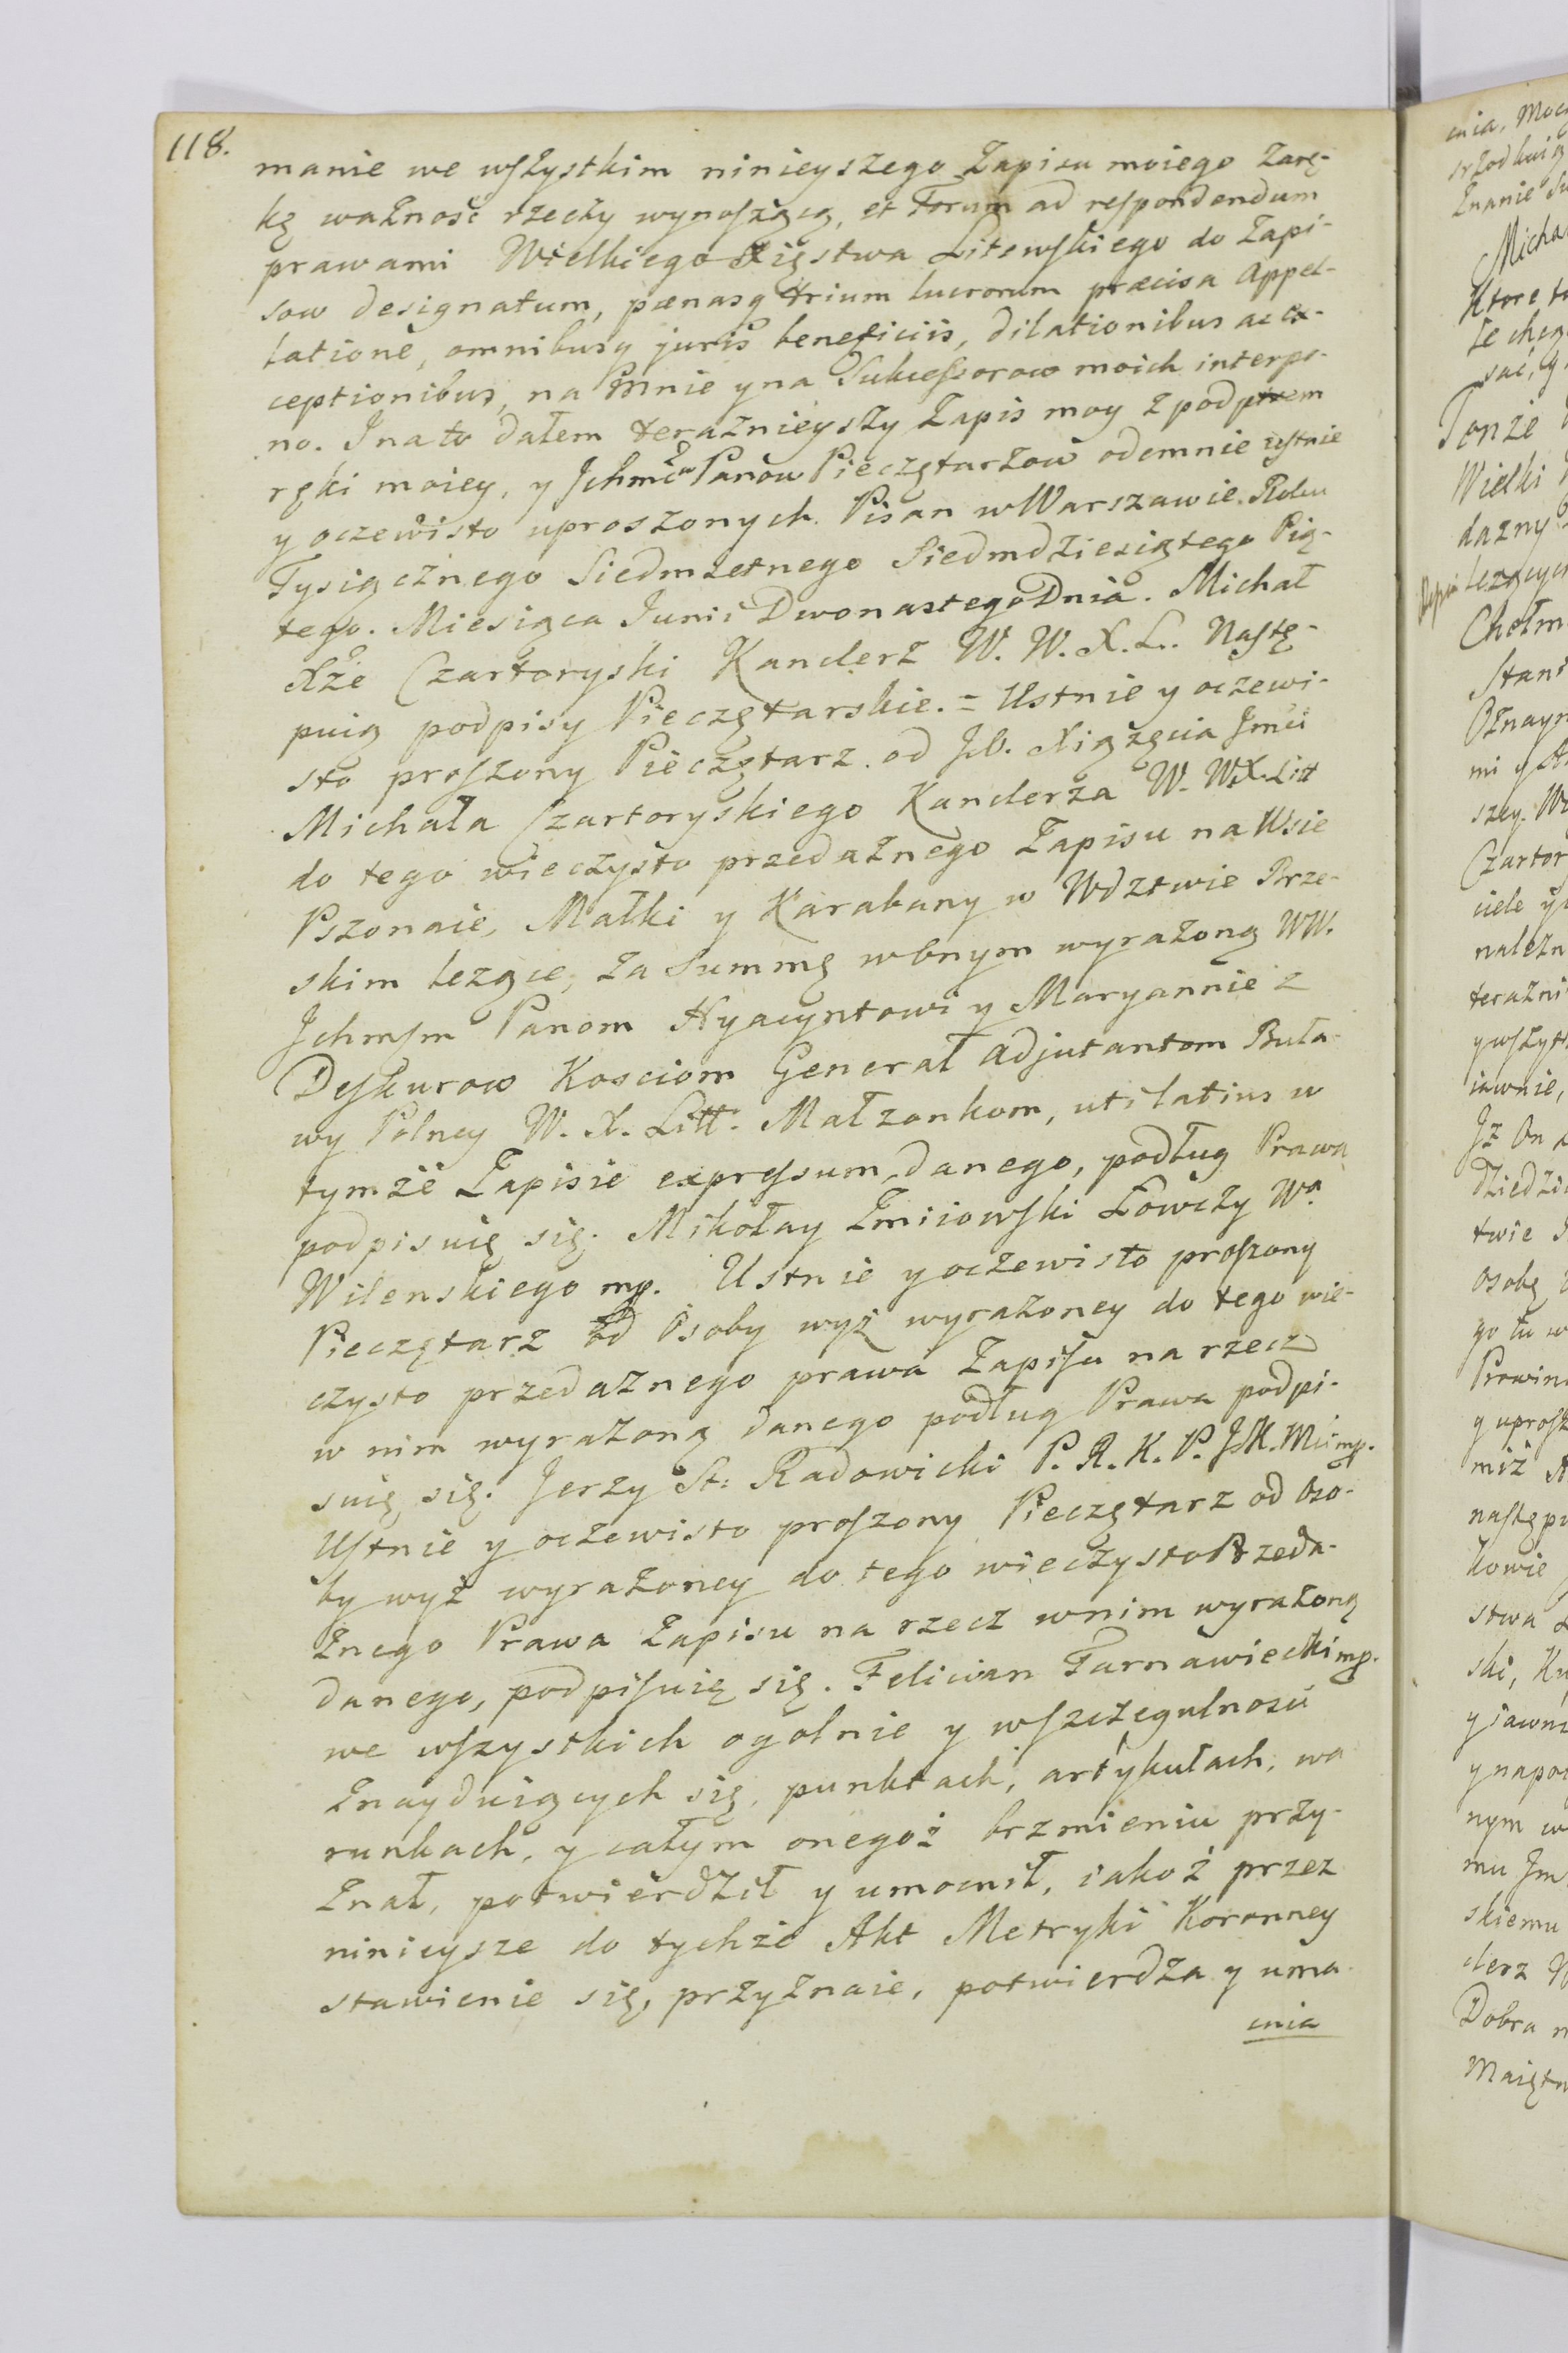 118.
manie we wszystkim ninieyszego Zapisu moiego zarę-
kę ważność rzeczy wynoszącą, et Forum ad respondendum
prawami Wielkiego Xięstwa Litewskiego do Zapi-
sow designatum, pænasq trium lucrorum præcisa Appel-
latione, omnibusq juris beneficiis, dilationibus ac ex-
ceptionibus, na Mnie y na Sukcessorow moich interpo-
no. I na to dałem teraznieyszy Zapis moy z podpisem
ręki moiey, y Ichmciow Panow Pieczętarzow odemnie ustnie
y oczewisto uproszonych. Pisan w Warszawie Roku
Tysiącznego Siedmsetnego Siedmdziesiątego Pią-
tego. Miesiąca Junii Dwonastego Dnia. Michał
Xże Czartoryski Kanclerz W. W. X. L. Nastę-
puią podpisy Pieczętarskie. = Ustnie y oczewi-
sto proszony Pieczętarz od JO. Xiążęcia Jmci
Michała Czartoryskiego Kanclerza W. W. X. Litt
do tego wieczysto przedażnego Zapisu na Wsie
Pszonaie, Matki y Karabany w Wdztwie Brze-
skim lezące, za Summę w onym wyrażoną WW.
Ichmsm Panom Hyacyntowi y Maryannie z
Deszkurow Kosciom Generał Adjutantom Buła-
wy Polney W. X. Litt: Małzonkom, uti latius w
tymże Zapisie expressum, danego, podług Prawa
podpisuię się. Mikołay Zmiiowski Łowczy Wa
Wilenskiego mp. Ustnie y oczewisto proszony
Pieczętarz od Osoby wyż wyrażoney do tego wie-
czysto przedażnego prawa Zapisu na rzecz
w nim wyrażoną danego podług Prawa podpi-
suię się. Jerzy St: Radowicki P. R. K. P. J. K. Mci mp.
Ustnie y oczewisto proszony Pieczętarz od Oso-
by wyż wyrażoney do tego wieczysto Przeda-
żnego Prawa Zapisu na rzecz w nim wyrażoną
danego, podpisuię się. Felician Tarnawiecki mp.
we wszystkich ogolnie y wszczegulnosci
Znayduiących się, punktach, artykułach, wa
runkach, y całym onegoż brzmieniu przy-
znał, potwierdził y umocnił, iakoż przez
ninieysze do tychże Akt Metryki Koronney
stawienie się, przyznaie, potwierdza y uma-
cnia
cnia, Moc
Znanie
Micha
Ktore
Tonże
Wielki
dazny
lezących
Chełm
Stani
Oznaym
mi y
szey. W
Czartor
ciele
należn
terazni
y wszyt
iawnie,
Iż On
dziedzi
twie
osobę
go tu w
Prowin
y uprosz
miż
następu
kowie
stwa
ski, Ku
y iawn
y napo
nym w
mu Jm
skiemu
clerz
Dobra
Maiętn